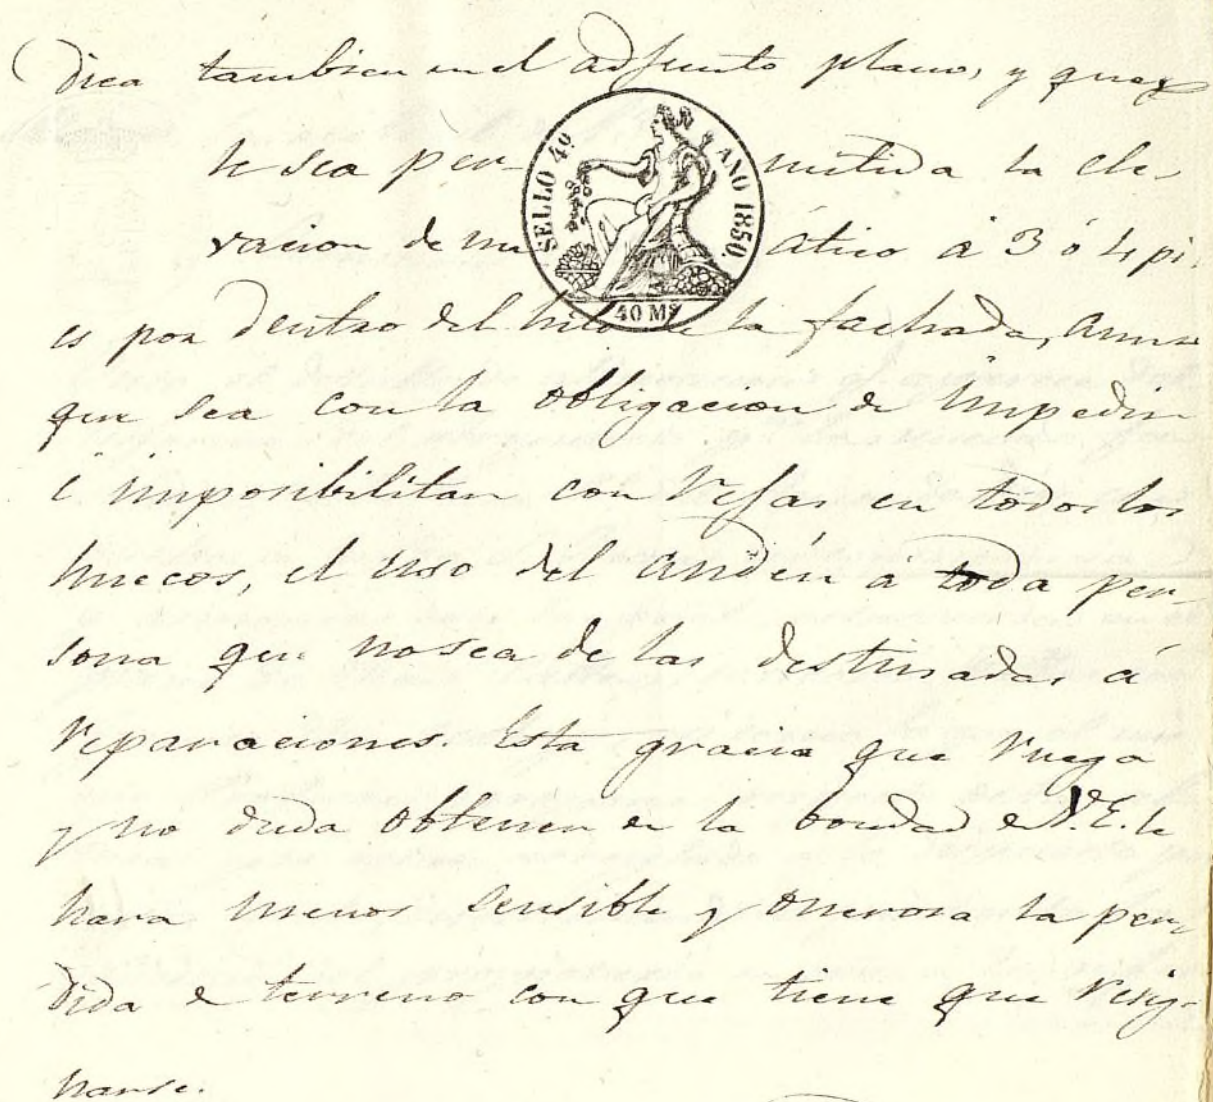 dica tambien en el adjunto plano, y que
le sea per- mitida la ele-
SELLO 4º AÑO 1850.
vacion de un ático á 3 ó 4 pi-
40 Mˢ
es por dentro del hilo de la fachada, aun-
que sea con la obligacion de impedir
é imposibilitar con rejas en todos los
huecos, el uso del andén a toda per-
sona que no sea de las destinadas á
reparaciones. Esta gracia que ruega
y no duda obtener de la bondad de V.E. le
hara menos sensible y onerosa la per-
dida de terreno con que tiene que resig-
narse.